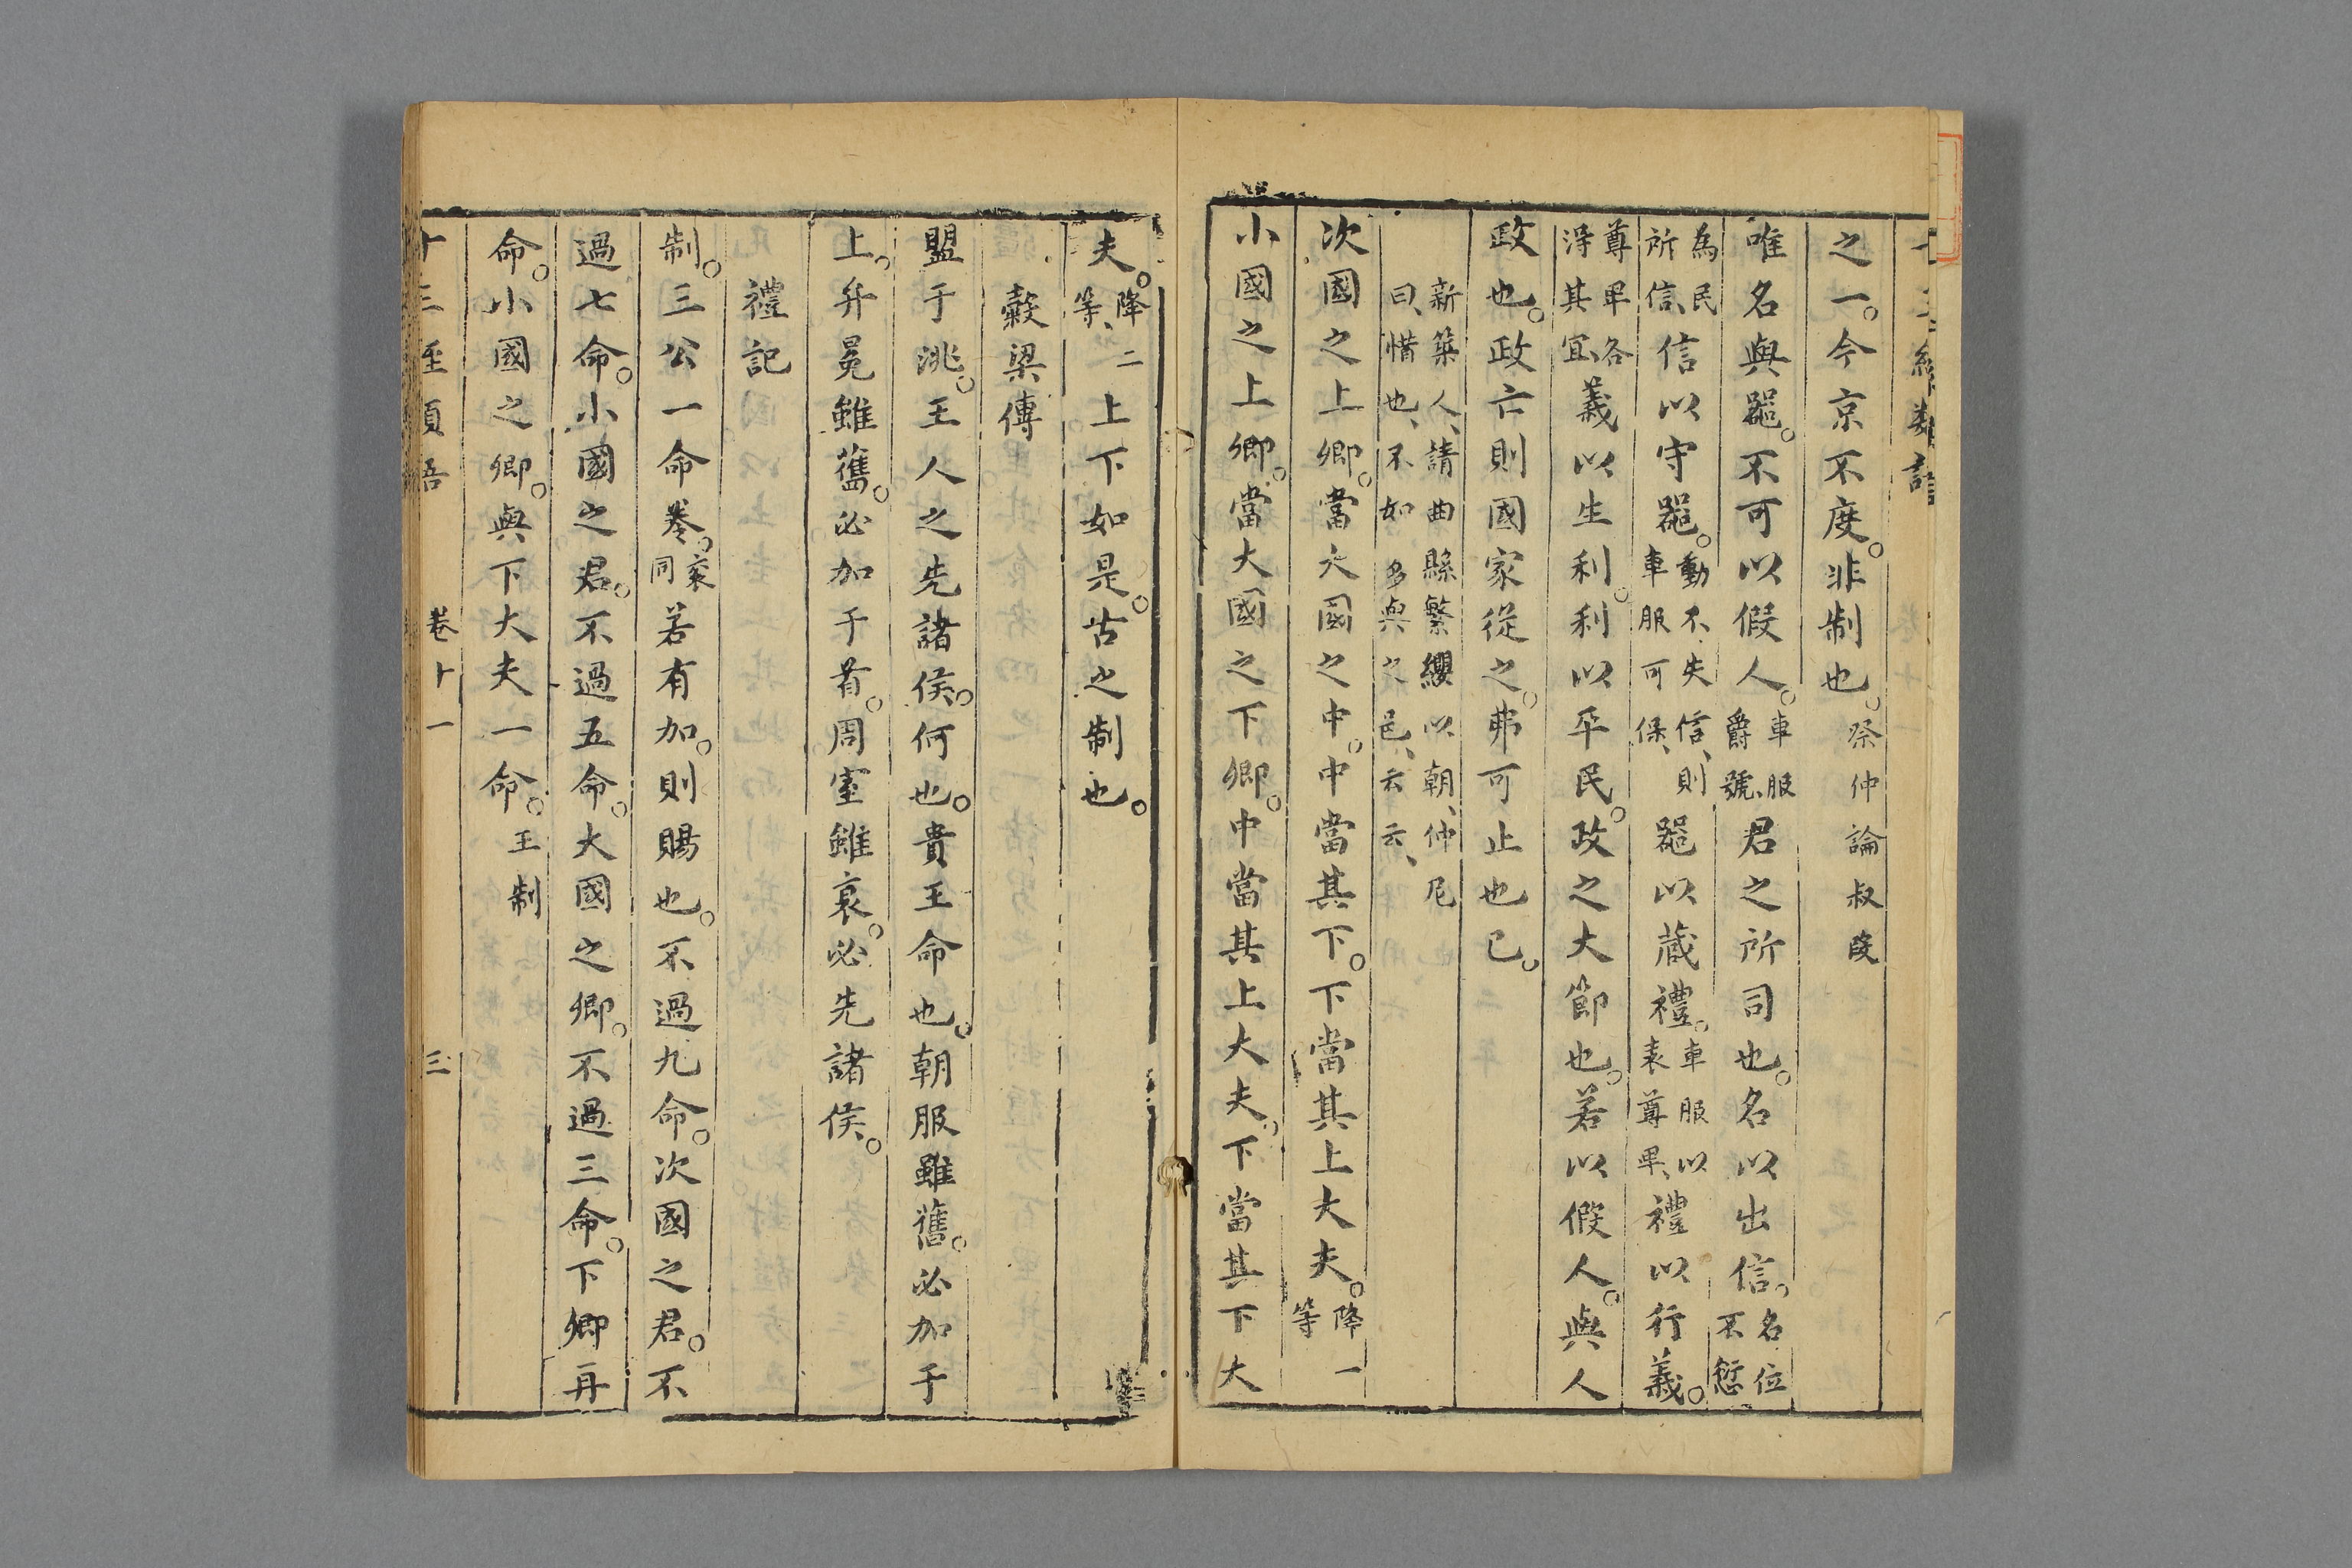 之一。今京不度。非制也。祭仲論叔段
唯名與器。不可以假人。車服爵號、君之所司也。名以出信。名位不愆
為民所信、信以守器。動不失信、則車服可保、器以蔵禮。車服以表尊卑、禮以行義。
尊卑各淂其宜、義以生利。利以平民。政之大節也。若以假人。與人
政也。政亡則國家從之。弗可止也已。
新築人、請曲縣繁纓以朝、仲尼曰、惜也、不如多與之邑、云云、
次國之上卿。當大國之中。中當其下。下當其上大夫。降一等
小國之上卿。當大國之下卿。中當其上大夫。下當其下大
夫。降二等、上下如是。古之制也。
穀梁傳
盟于洮。王人之先諸侯。何也。貴王命也。朝服雖舊。必加于
上。弁冕雖舊。必加于首。周室雖衰。必先諸侯。
禮記
制。三公一命卷。衮同若有加。則賜也。不過九命。次國之君。不
過七命。小國之君。不過五命。大國之卿。不過三命。下卿再
命。小國之卿。與下大夫一命。王制
卷十一 三